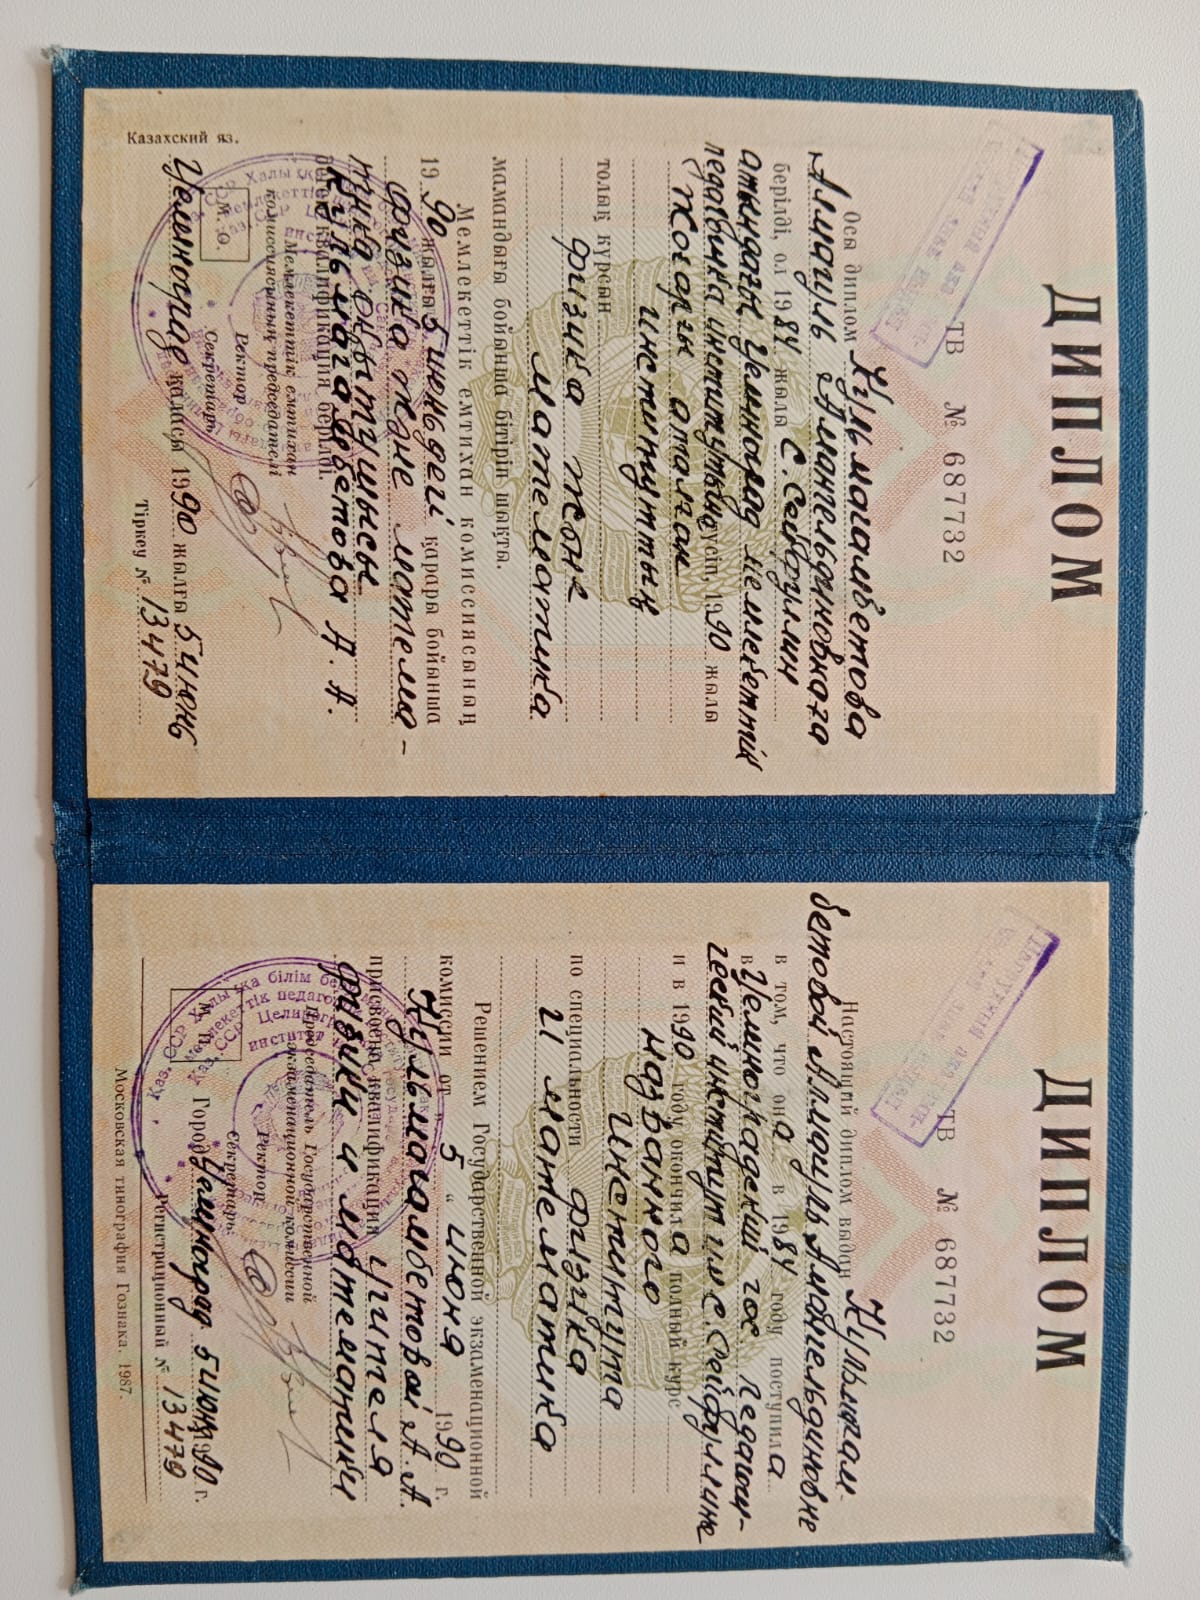 ДИПЛОМ
ТВ № 687732
Осы диплом Кульмагамбетова
Алмагуль Амангельдиновнаға
берілді, ол 1984 жылы С. Сейфуллин
атындағы Целиноград мемлекеттік
педагогика институтына түсіп, 1990 жылы
Жоғары аталған
институттың
толық курсын
физика және
математика
мамандығы бойынша бітіріп шықты.
Мемлекеттік емтихан комиссиясының
1990 жылғы 5 июньдегі қарары бойынша
физика және матема-
тика оқытушысы
Кульмагамбетова А. А.
деген квалификация берілді.
Мемлекеттік емтихан
комиссиясының председателі
Ректор
Секретарь
М. О.
Целиноград қаласы 1990 жылғы 5 июнь
Тіркеу № 13479
Казахский яз.
ДИПЛОМ
ТВ № 687732
Настоящий диплом выдан Кульмагам-
бетовой Алмагуль Амангельдиновне
в том, что она в 1984 году поступила
в Целиноградский гос. педагоги-
ческий институт им. С. Сейфуллина
и в 1990 году окончила полный курс
названного
института
по специальности физика
и математика
Решением Государственной экзаменационной
комиссии от „ 5 “ июня 1990 г.
Кульмагамбетовой А. А.
присвоена квалификация учителя
физики и математики
Председатель Государственной
экзаменационной комиссии
Ректор
Секретарь
М. П.
Город Целиноград 5 июня 1990 г.
Регистрационный № 13479
Московская типография Гознака. 1987.